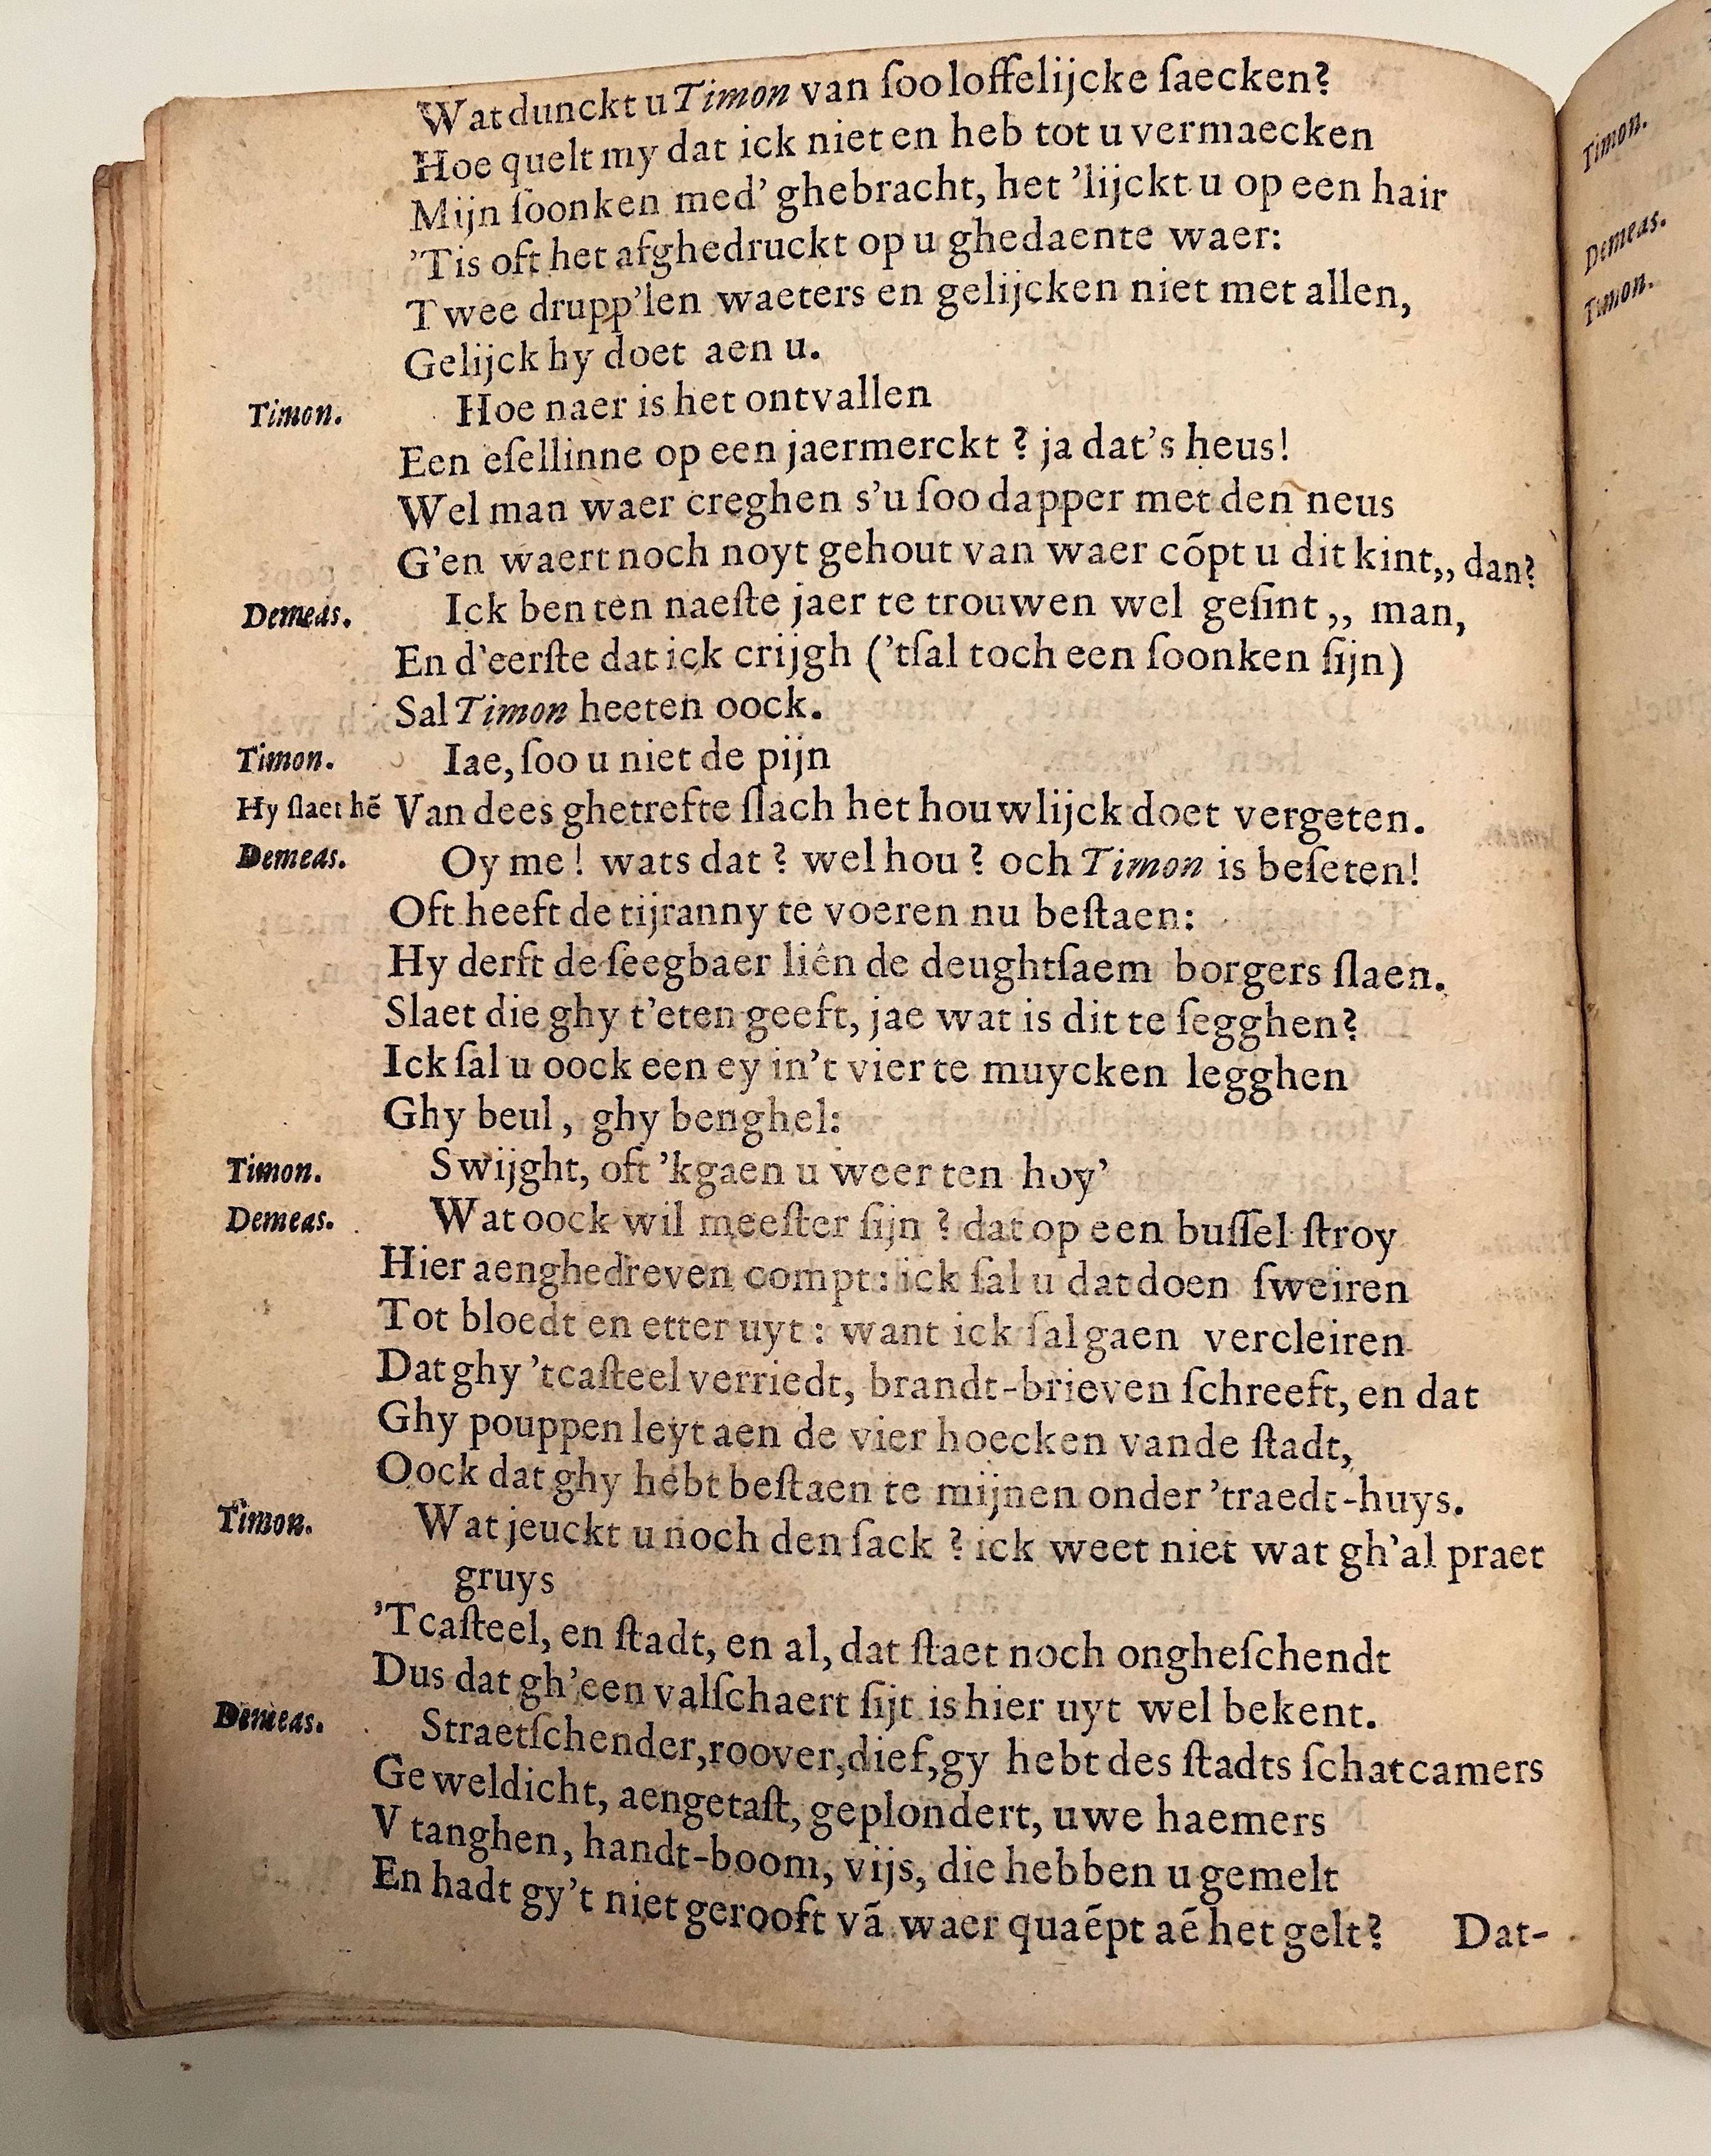 Wat dunckt u Timon van ſoo loffelijcke ſaecken?
Hoe quelt my dat ick niet en heb tot u vermaecken
Mijn ſoonken med' ghebracht, het 'lijckt u op een hair
'Tis oft het afghedruckt op u ghedaente waer:
Twee drupp'len waeters en gelijcken niet met allen,
Gelijck hy doet aen u.
Timon. Hoe naer is het ontvallen
Een eſellinne op een jaermerckt ? ja dat's heus!
Wel man waer creghen s'u ſoo dapper met den neus
G'en waert noch noyt gehout van waer cõpt u dit kint,, dan?
Demeas. Ick ben ten naeſte jaer te trouwen wel geſint ,, man,
En d'eerſte dat ick crijgh ('tſal toch een ſoonken ſijn)
Sal Timon heeten oock.
Timon. Iae, ſoo u niet de pijn
Hy ſlaet hẽ Van dees ghetrefte ſlach het houwlijck doet vergeten.
Demeas. Oy me! wats dat ? wel hou ? och Timon is beſeten!
Oft heeft de tijranny te voeren nu beſtaen:
Hy derft de ſeegbaer liên de deughtſaem borgers ſlaen.
Slaet die ghy t'eten geeft, jae wat is dit te ſegghen?
Ick ſal u oock een ey in't vier te muycken legghen
Ghy beul, ghy benghel:
Timon. Swijght, oft 'kgaen u weer ten hoy'
Demeas. Wat oock wil meeſter ſijn ? dat op een buſſel ſtroy
Hier aenghedreven compt: ick ſal u dat doen ſweiren
Tot bloedt en etter uyt : want ick ſal gaen vercleiren
Dat ghy 'tcaſteel verriedt, brandt-brieven ſchreeft, en dat
Ghy pouppen leyt aen de vier hoecken vande ſtadt,
Oock dat ghy hebt beſtaen te mijnen onder 'traedt-huys.
Timon. Wat jeuckt u noch den ſack ? ick weet niet wat gh'al praet
gruys
'Tcaſteel, en ſtadt, en al, dat ſtaet noch ongheſchendt
Dus dat gh'een valſchaert ſijt is hier uyt wel bekent.
Demeas. Straetſchender, roover, dief, gy hebt des ſtadts ſchatcamers
Geweldicht, aengetaſt, geplondert, uwe haemers
V tanghen, handt-boom, vijs, die hebben u gemelt
En hadt gy't niet gerooft vã waer quaẽpt aẽ het gelt?
Dat-
Timon.
Demeas.
Timon.